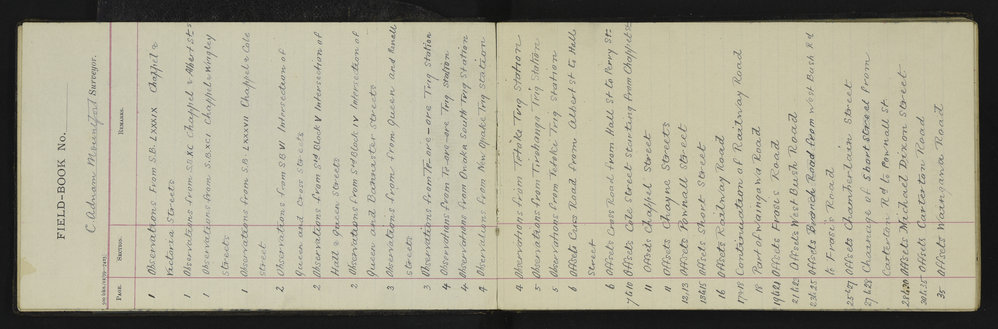 FIELD-BOOK No.
C. Adnam Mountfort Surveyor.
PAGE. SECTION. REMARKS.
1 Observations From S.B. LXXXIX Chappel &
Victoria Streets
1 Observations from S.B. XC Chappel & Albert Sts
1 Observations from S.B. XCI Chappel & Kingley
Streets
1 Observations from S.B. LXXXVII Chappel & Cole
Street
2 Observations from S.B VI Intersection of
Queen and Cross Streets
2 Observations from Std Block V Intersection of
Hall & Queen Streets
2 Observations from Std Block IV Intersection of
Queen and Bannister Streets
3 Observations from from Queen and
Streets
3 Observations from Te-are-are Trig Station
4 Observations from Te-are-are Trig Station
4 Observations from Onoka South Trig Station
4 Observations from New Opake Trig Station
4 Observations from Titoka Trig Station
5 Observations from Tirohanga Trig Station
5 Observations from Titoke Trig Station
6 Offsets Cross Road from Albert St to Hall
Street
6 Offsets Cross Road from Hall St to Perry St
7 to 10 Offsets Cole Street Starting from Chappel St
11 Offsets Chappel Street
11 Offsets Chayne Streets
12,13 Offsets Pownall Street
13 to 15 Offsets Short Street
16 Offsets Railway Road
17 & 18 Continuation of Railway Road
18 Part of Waingawa Road
19 to 21 Offsets Frase's Road
21 to 22 Offsets West Bush Road
23 to 25 Offsets Road from West Bush Rd
to Frase's Road
25 to 27 Offsets Chamberlain Street
27 to 28 Chainage of Short Street from
Carterton Rd to Pownall St
28 to 30 Offsets Michael Dixon Street
Offsets Carterton Road
35 Offsets Waingawa Road